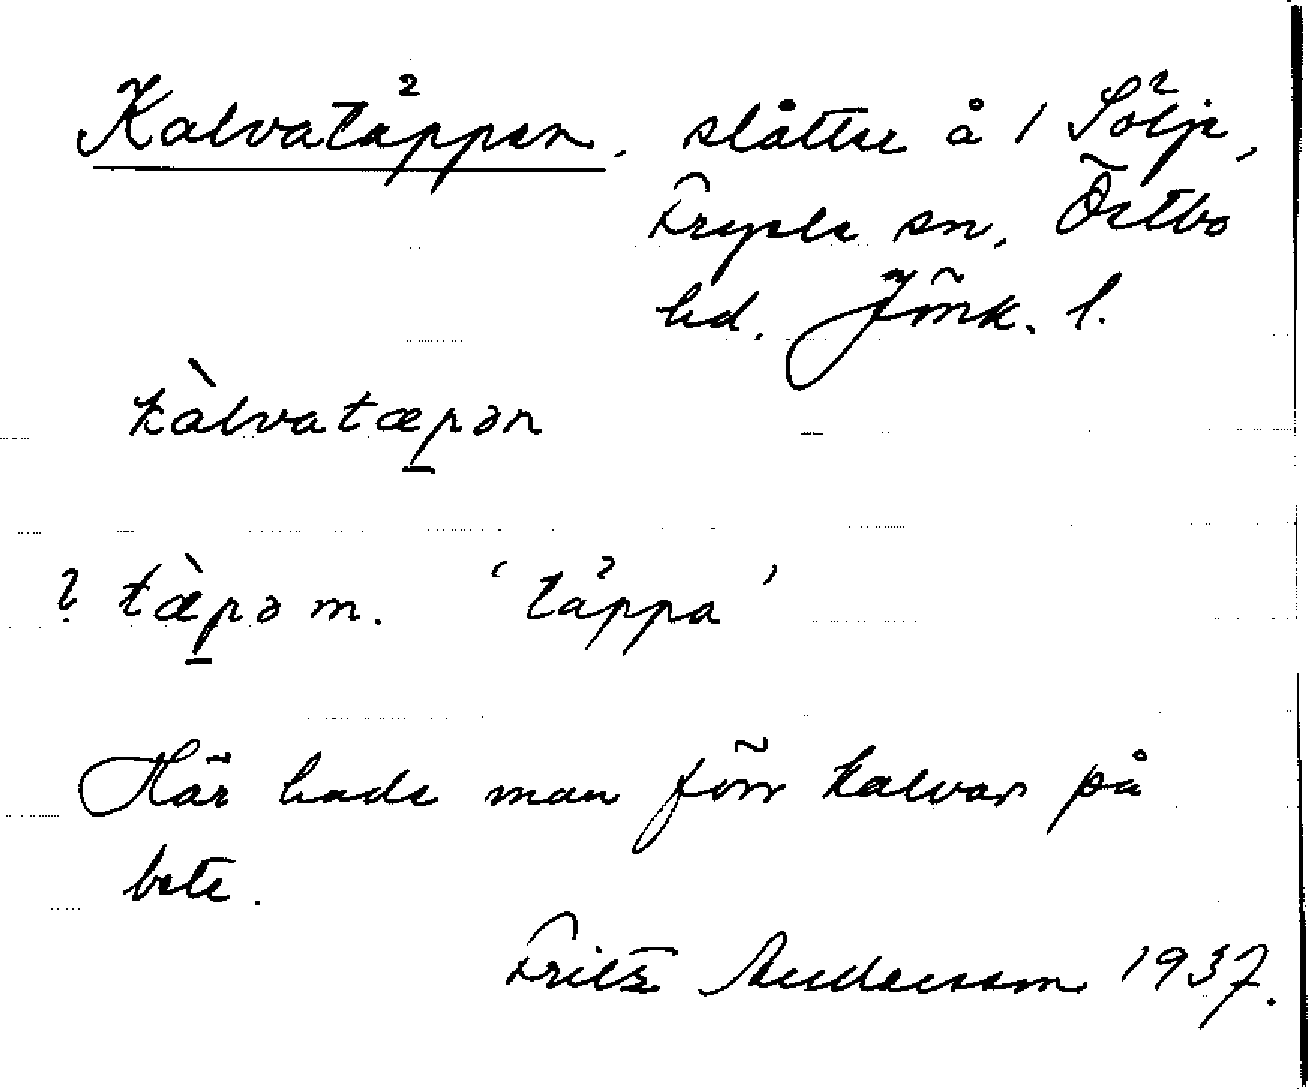 Kalvatäppen. slåtter å 1 Sölje,
Fryele sn, Östbo
hd. Jönk. l.
kàlvatæpən
? tæ̀pə m. 'täppa'
Här hade man förr kalvar på
bete.
Fritz Andersson 1937.